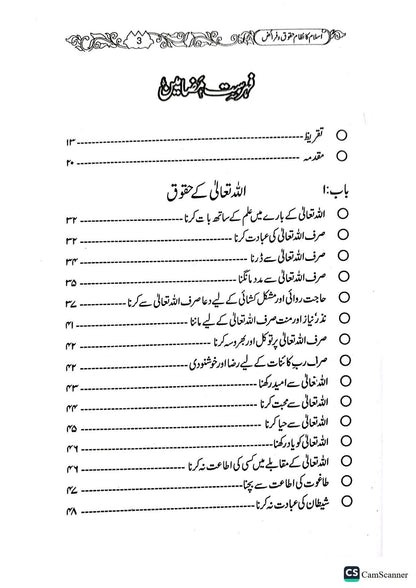 اسلام کا نظام حقوق و فرائض 3
فہرست مضامین
تقریظ ۱۳
مقدمہ ۲۰
باب: ۱ اللہ تعالیٰ کے حقوق
اللہ تعالیٰ کے بارے میں علم کے ساتھ بات کرنا ۳۲
صرف اللہ تعالیٰ کی عبادت کرنا ۳۲
صرف اللہ تعالیٰ سے ڈرنا ۳۴
صرف اللہ تعالیٰ سے مدد مانگنا ۳۵
حاجت روائی اور مشکل کشائی کے لیے دعا صرف اللہ تعالیٰ سے کرنا ۳۷
نذر و نیاز اور منت صرف اللہ تعالیٰ کے لیے ماننا ۴۱
صرف اللہ تعالیٰ پر توکل اور بھروسہ کرنا ۴۲
صرف رب کائنات کے لیے رضا اور خوشنودی ۴۲
اللہ تعالیٰ سے امید رکھنا ۴۳
اللہ تعالیٰ سے محبت کرنا ۴۴
اللہ تعالیٰ سے حیا کرنا ۴۵
اللہ تعالیٰ کو یاد رکھنا ۴۶
اللہ تعالیٰ کے مقابلے میں کسی کی اطاعت نہ کرنا ۴۶
طاغوت کی اطاعت سے بچنا ۴۷
شیطان کی عبادت نہ کرنا ۴۸
CS CamScanner